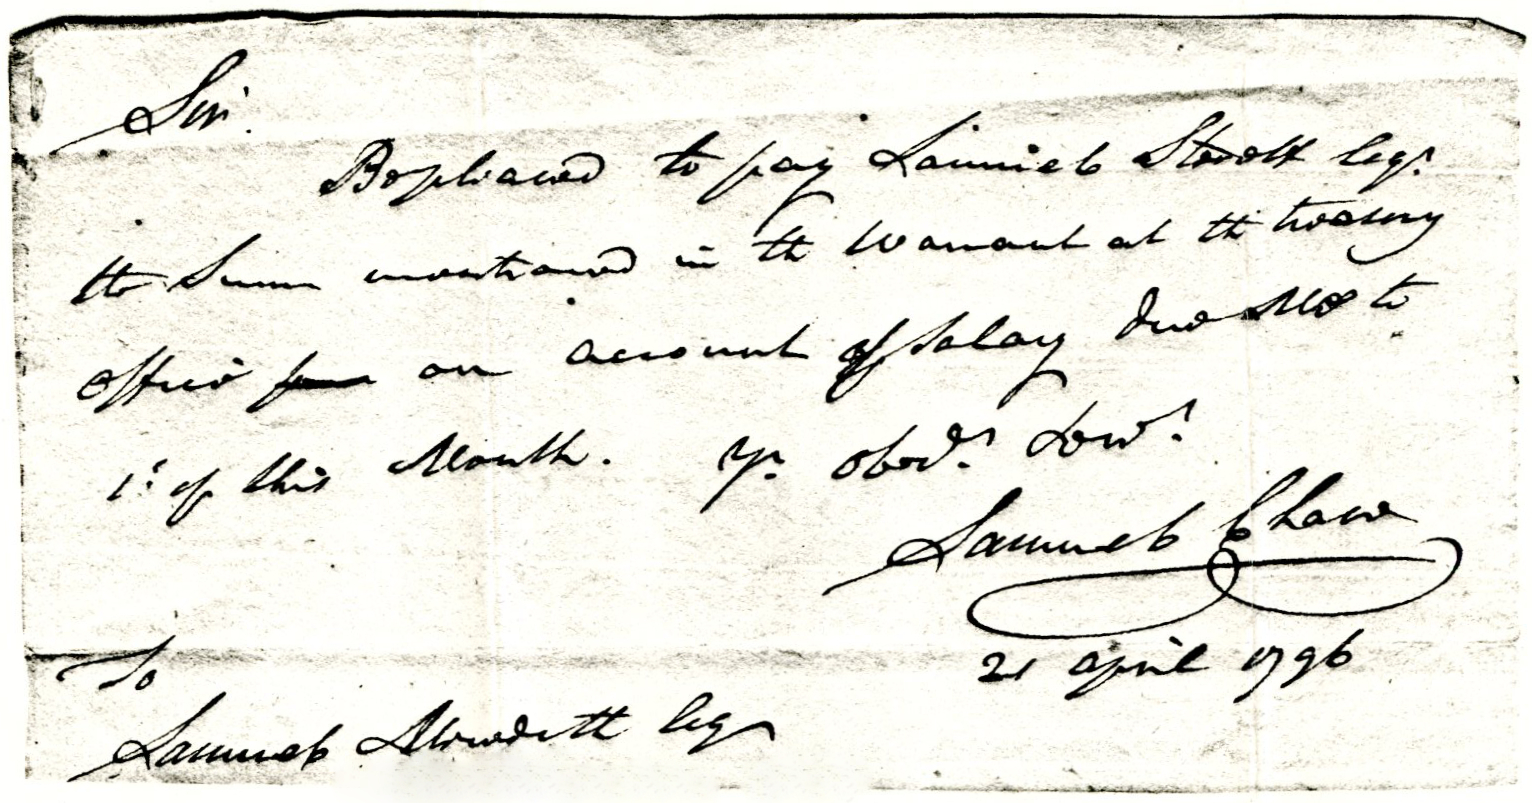 Sir.
Be pleased to pay Samuel Sterett Esqr.
the Sum mentioned in the Warrant at the treasury
office on account of Salary due Me to
1st of this Month. Yr. obedt. Servt.
Samuel Chase
21 april 1796
To
Samuel Meredith Esqr